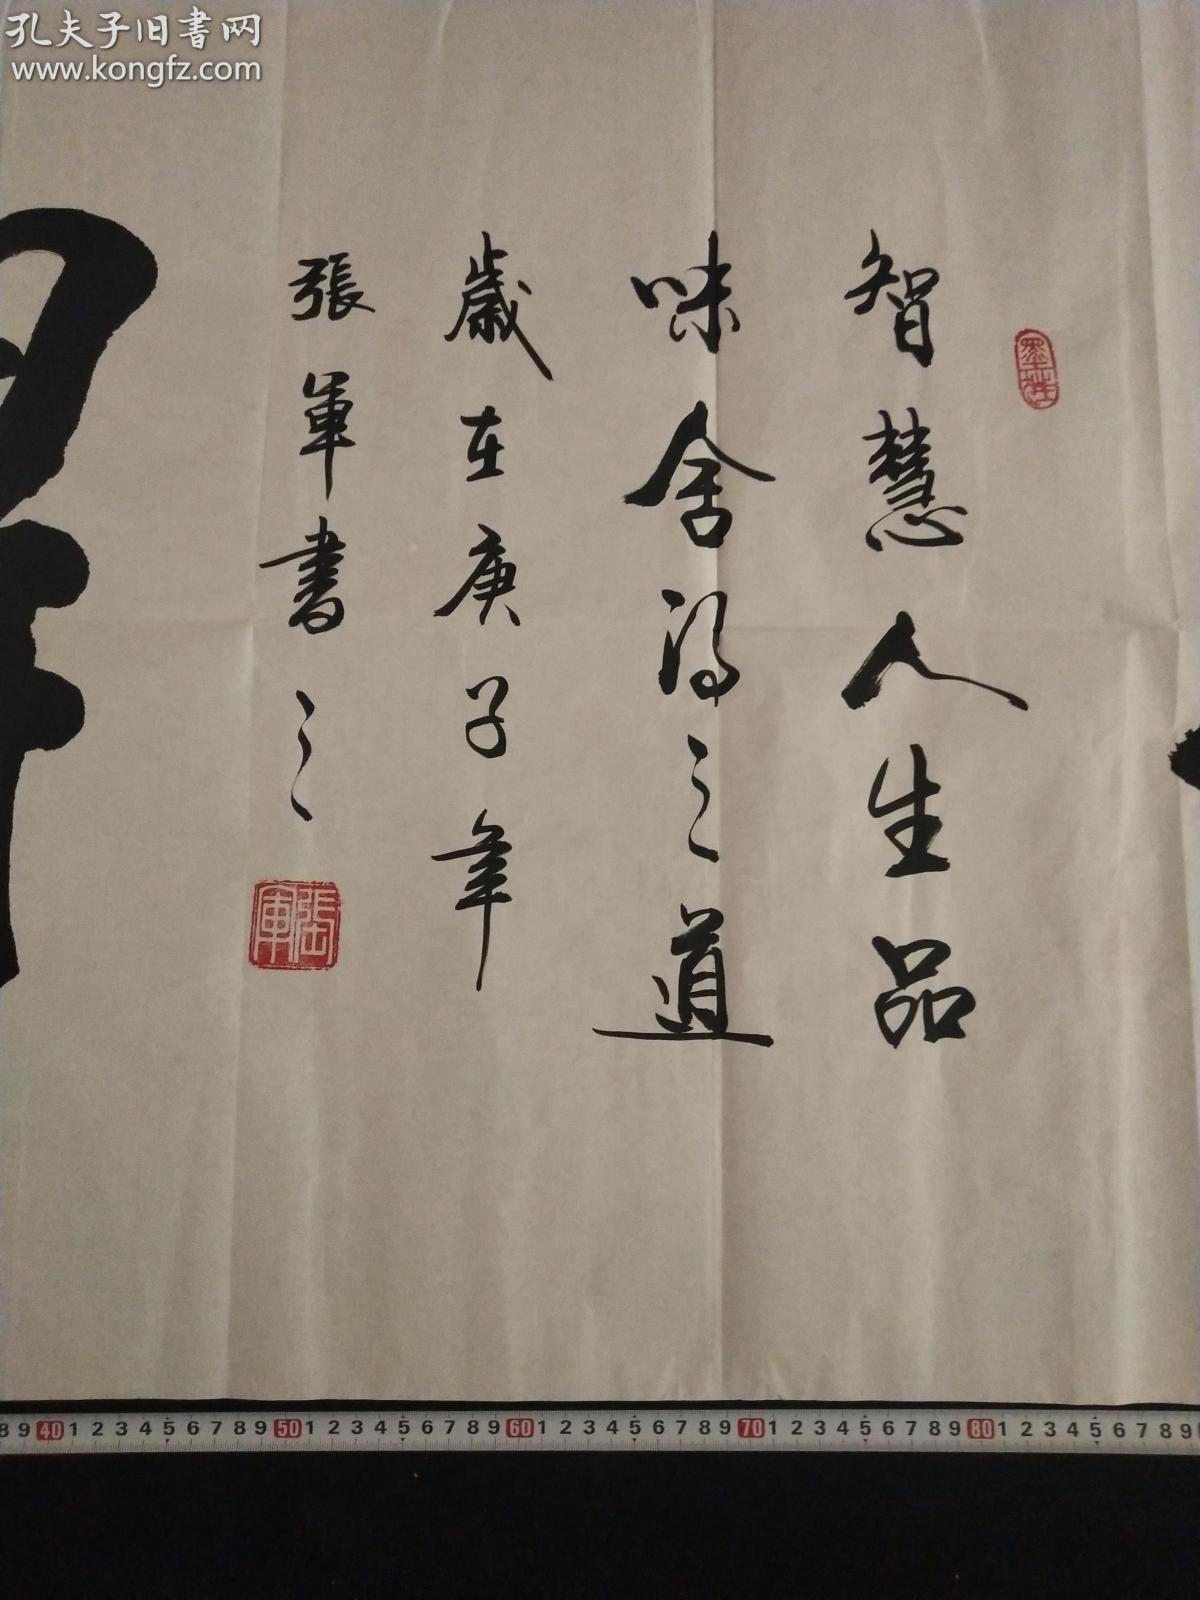 孔夫子旧書网
www.kongfz.com
智慧人生品
味舍得之道
歲在庚子年
張軍書之
張軍
8 9 40 1 2 3 4 5 6 7 8 9 50 1 2 3 4 5 6 7 8 9 60 1 2 3 4 5 6 7 8 9 70 1 2 3 4 5 6 7 8 9 80 1 2 3 4 5 6 7 8 9